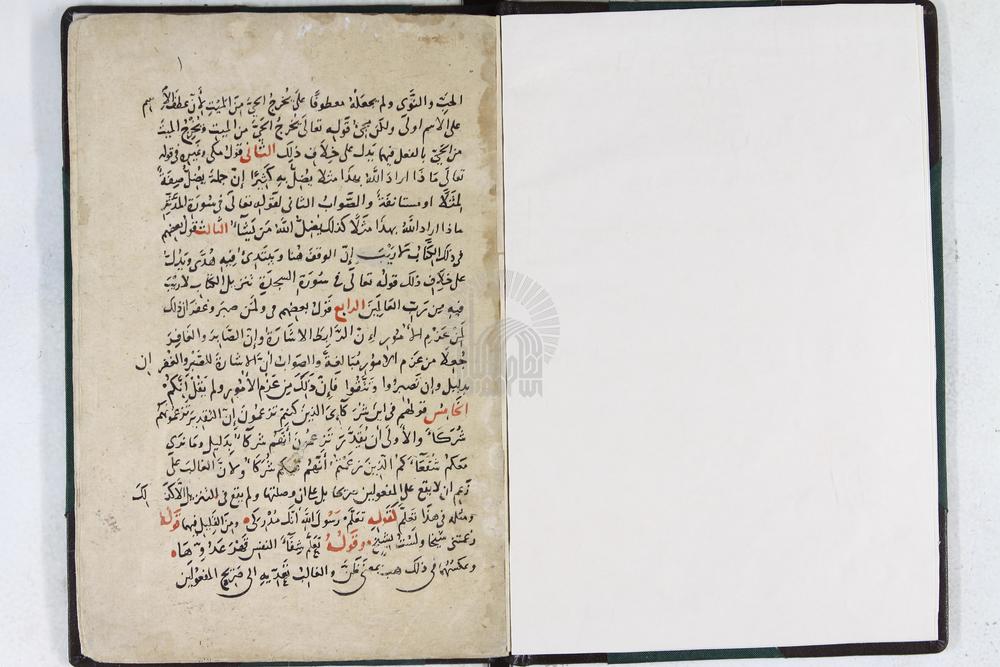 ١
الحبّ والنَّوَى ولم يجعله معطوفًا على يُخرج الحيَّ من الميّتِ لأنّ عطف الاسم
على الاسم اولى ولكن مجئ قوله تعالى يُخرج الحيَّ من الميت ويُخرِجُ الميتَ
من الحيّ بالفعل فيهما يدل على خلاف ذلك الثانى قول مكى وغيره فى قوله
تعالى ماذا اراد اللهُ بهذا مثلا يضلّ به كثيرًا إنّ جملة يضل صفة
لمثلًا او مستانفة والصّواب الثانى لقوله تعالى فى سورة المدّثر
ماذا اراد الله بهذا مثلًا كذلك يضلّ الله من يشاء الثالث قول بعضهم
فى ذلك الكتاب لا ريب إنّ الوقف هنا ويبتدئ فيه هدًى ويدلّ
على خلاف ذلك قوله تعالى فى سورة السجدة تنزيل الكتاب لا ريبَ
فيه من ربّ العالمين الرابع قول بعضهم فى ولمن صبر وغفر ان ذلك
لمن عزم الامور إنّ الرّابط الاشارة وإنّ الصّابر والغافر
جُعلا من عزم الامور مبالغة والصواب انّ الاشارة للصّبر والغفران
بدليل وإن تصبروا وتتّقوا فإنّ ذلك من عزم الأمور ولم يقل إنّكم
الخامس قولهم فى اين شركآءى الذين كنتم تزعمون إنّ التقدير تزعمونهم
شركآء والأولى ان يقدّر تزعمون أنّهم شركآء بدليل وما نرى
معكم شفعآءكم الّذين زعمتم أنّهم فيكم شركآء ولانّ الغالب على
زعم ان لا يقع على المفعولين صريحا بل على ان وصلتها ولم يقع فى التنزيل الّا كذلك
ومثله فى هذا تعلّم كقوله تعلّم رسول الله انّك مدركى ومن القليل فيهما قوله
زعمتنى شيخا ولستُ بشيخ وقوله تعلّم شفآءَ النفس قهرَ عدوّها
وعكسهما فى ذلك هب بمعنى ظنّ والغالب تعدّيه الى صريح المفعولين